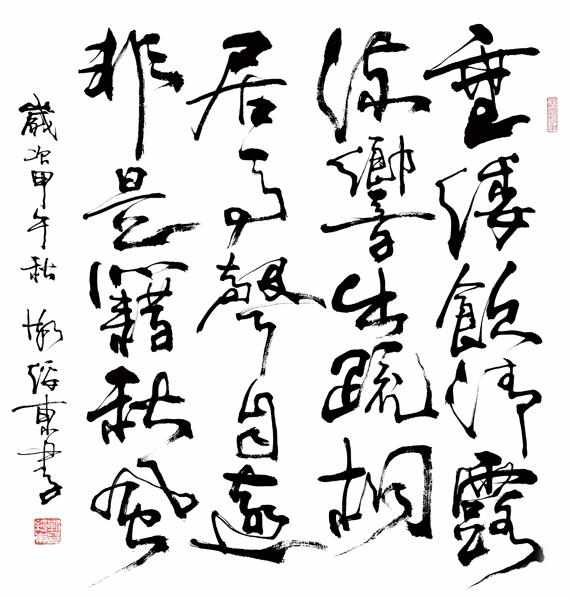 垂緌飲清露
流響出疏桐
居高聲自遠
非是藉秋風
歲次甲午秋 東書